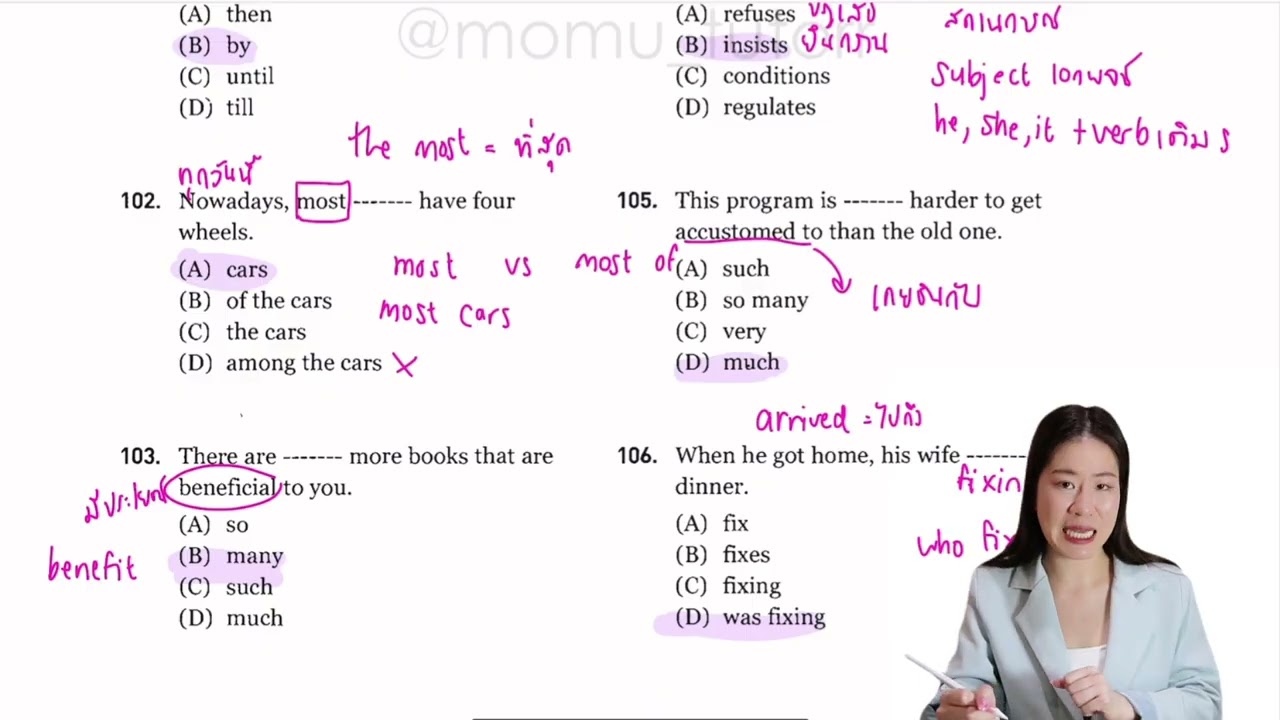 @momu_tutor
(A) then
(B) by
(C) until
(D) till
the most = ที่สุด
ทุกวันนี้
102. Nowadays, most ------- have four
wheels.
(A) cars
(B) of the cars
(C) the cars
(D) among the cars ×
most vs most of
most cars
103. There are ------- more books that are
beneficial to you.
มีประโยชน์
benefit
(A) so
(B) many
(C) such
(D) much
(A) refuses ปฏิเสธ
(B) insists ยืนกราน
(C) conditions
(D) regulates
subject เอกพจน์
he, she, it + verb เติม s
105. This program is ------- harder to get
accustomed to than the old one.
(A) such
(B) so many
(C) very
(D) much
เคยชินกับ
arrived = ไปถึง
106. When he got home, his wife -------
dinner.
fixin
who fix
(A) fix
(B) fixes
(C) fixing
(D) was fixing